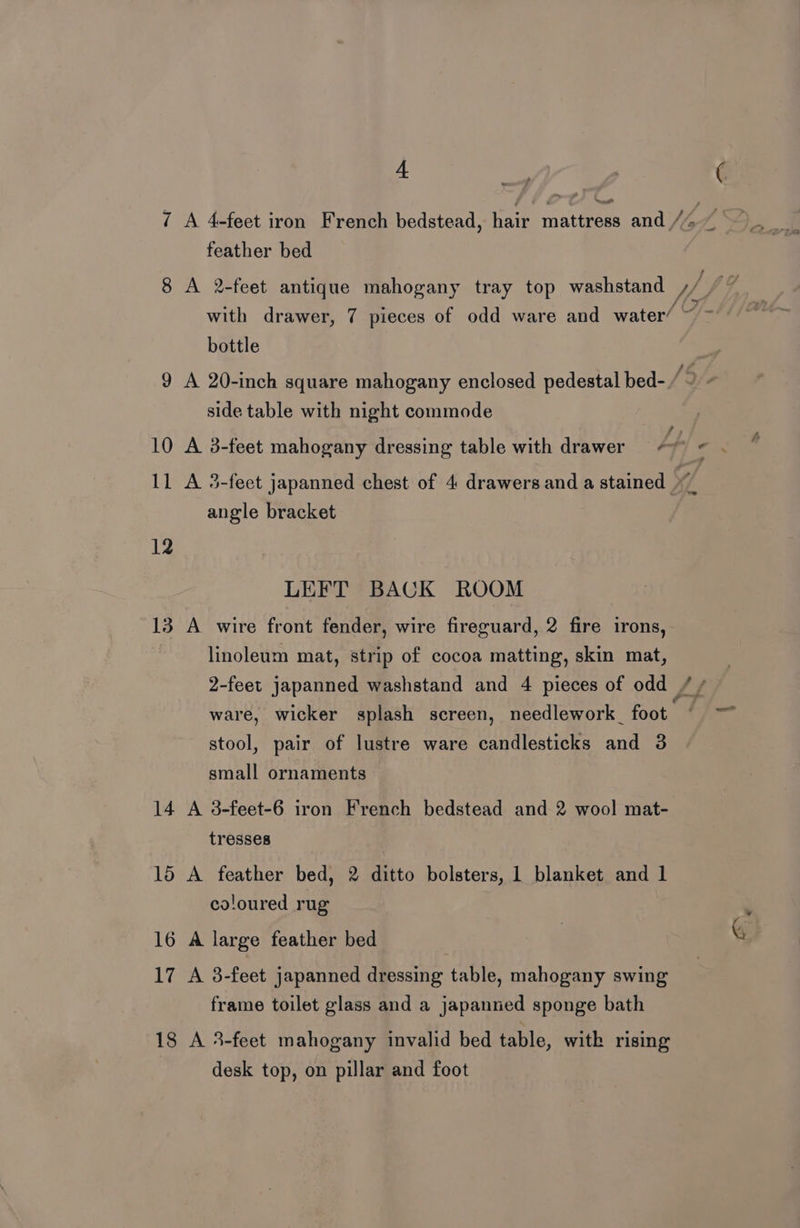 4
7 A 4-feet iron French bedstead, hair mattress and
feather bed
8 A 2-feet antique mahogany tray top washstand
with drawer, 7 pieces of odd ware and water
bottle
9 A 20-inch square mahogany enclosed pedestal bed-
side table with night commode
10 A 3-feet mahogany dressing table with drawer
11 A 3-feet japanned chest of 4 drawers and a stained
angle bracket
12
LEFT BACK ROOM
13 A wire front fender, wire fireguard, 2 fire irons,
linoleum mat, strip of cocoa matting, skin mat,
2-feet japanned washstand and 4 pieces of odd
ware, wicker splash screen, needlework foot
stool, pair of lustre ware candlesticks and 3
small ornaments
14 A 3-feet-6 iron French bedstead and 2 wool mat-
tresses
15 A feather bed, 2 ditto bolsters, 1 blanket and 1
coloured rug
16 A large feather bed
17 A 3-feet japanned dressing table, mahogany swing
frame toilet glass and a japanned sponge bath
18 A 3-feet mahogany invalid bed table, with rising
desk top, on pillar and foot